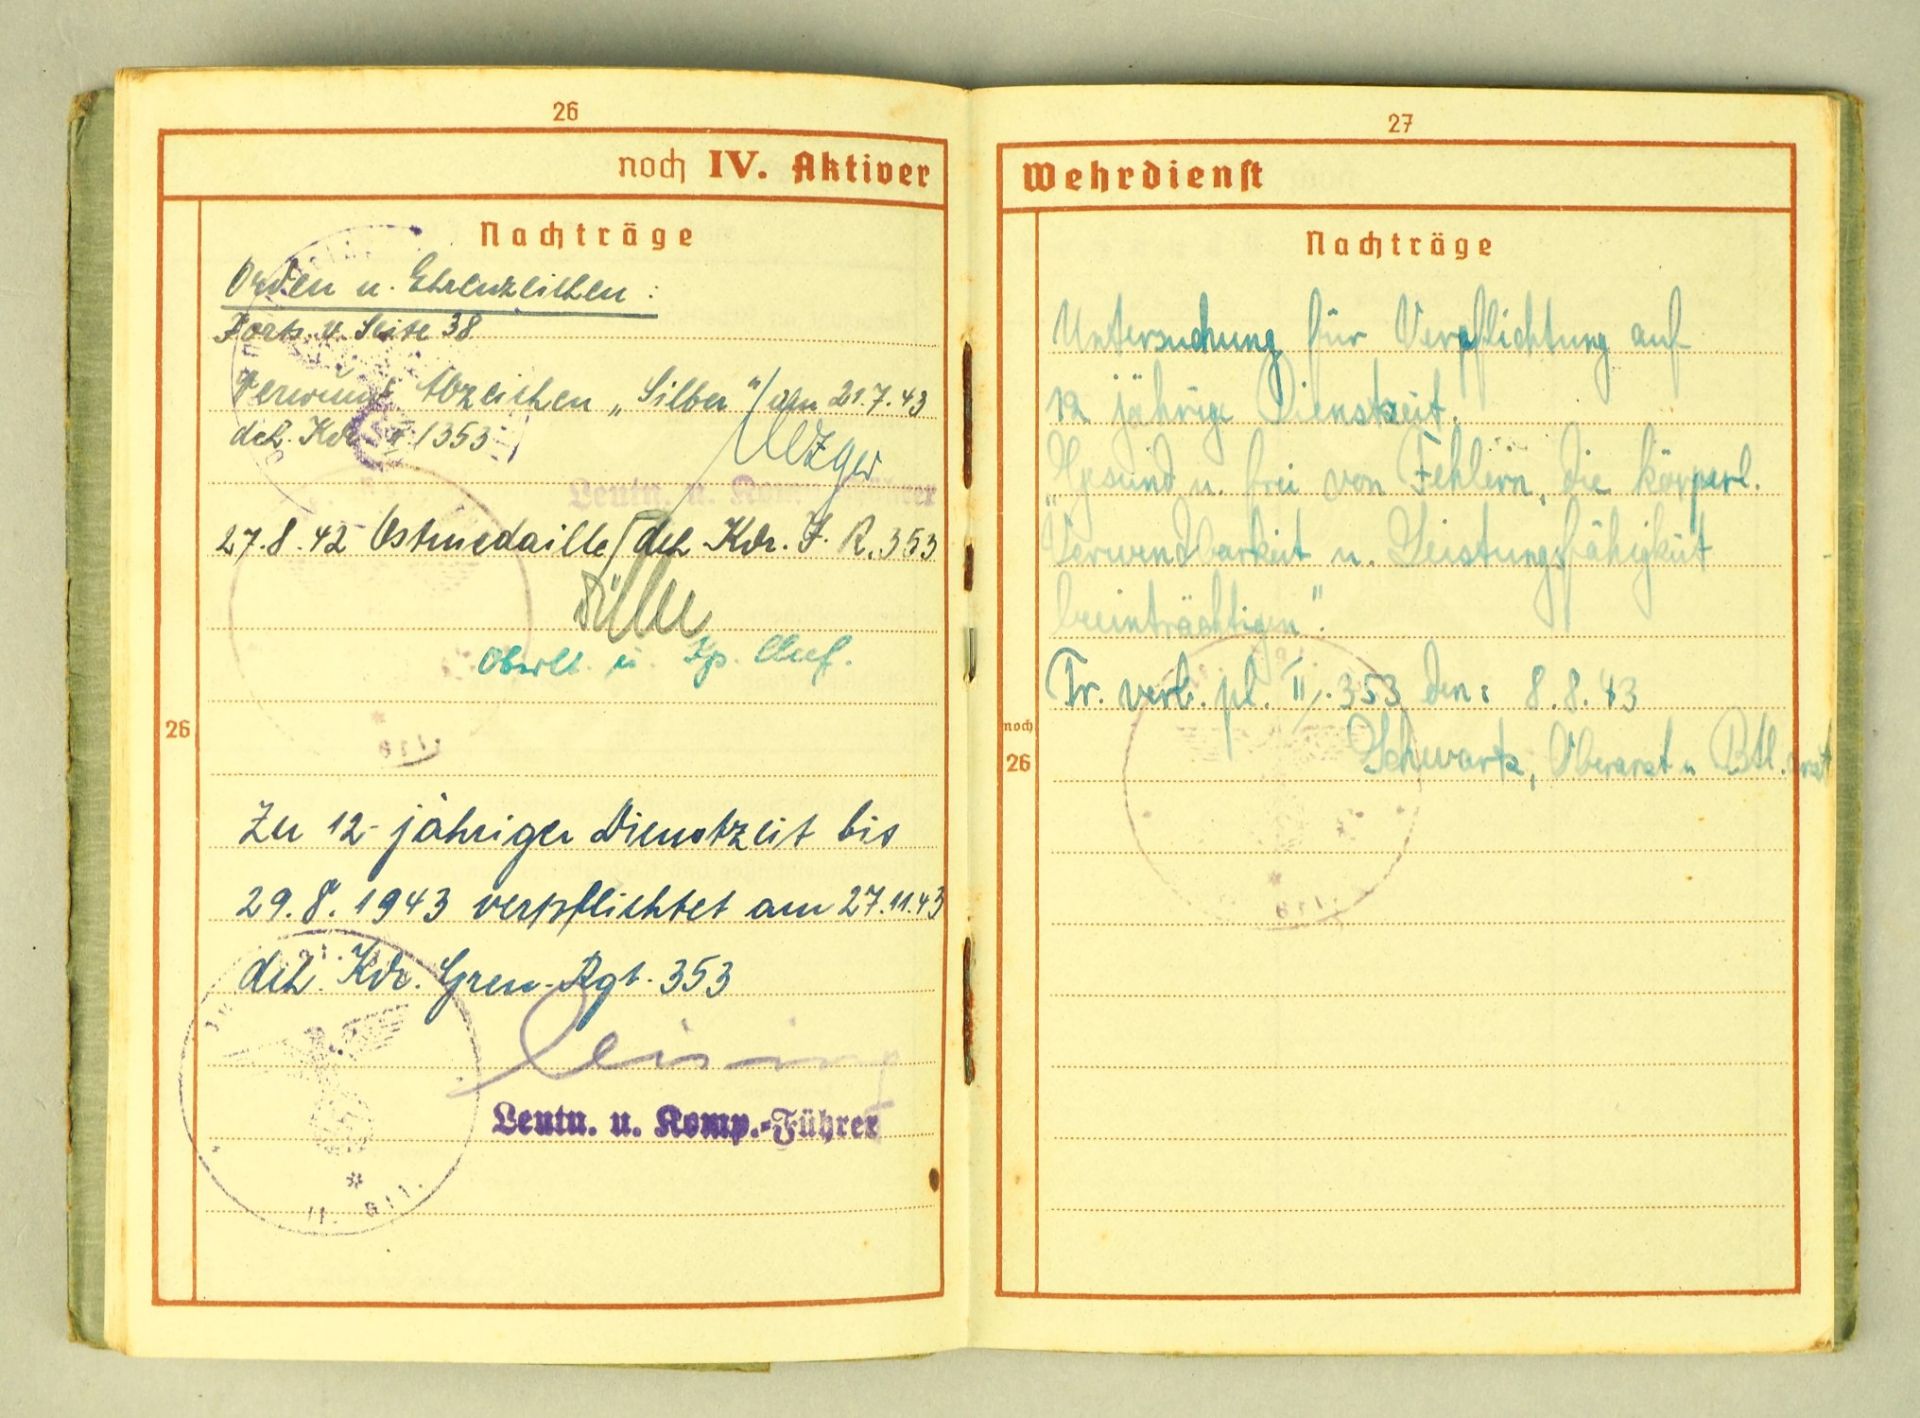 26
noch IV. Aktiver
Nachträge
Orden u. Ehrenzeichen:
Forts. v. Seite 38
Verwund. Abzeichen „Silber" / am 21.7.43
dch. Kdr. II/353
Metzger
Leutn. u. Komp.-Führer
27.8.42 Ostmedaille / dch Kdr. J. R. 353
Oberlt. u. Kp. Chef.
26
Zu 12-jähriger Dienstzeit bis
29.8.1943 verpflichtet am 27.11.43
dch. Kdr. Gren. Rgt. 353
Leutn. u. Komp.-Führer
27
Wehrdienst
Nachträge
Untersuchung für Verpflichtung auf
12 jährige Dienstzeit.
„Gesund u. frei von Fehlern, die körperl.
Verwendbarkeit u. Leistungsfähigkeit
beeinträchtigen".
Tr. verb. pl. II/.353 den: 8.8.43
noch
26
Schwartz, Oberarzt u. Btl. arzt